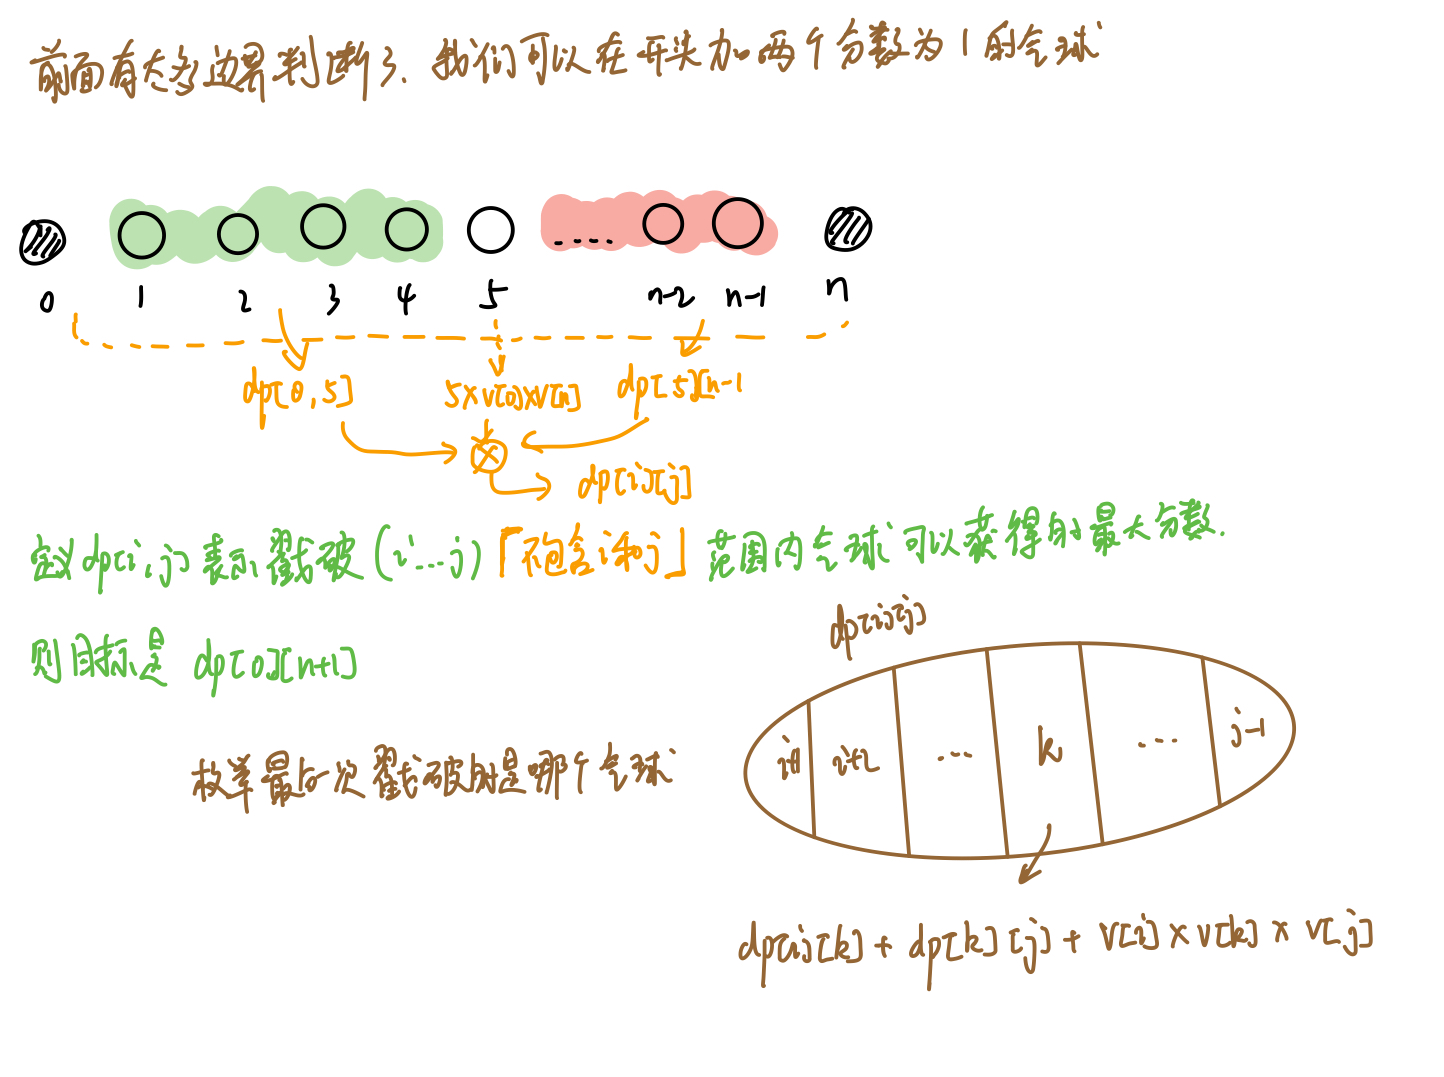 前面有太多边界判断了. 我们可以在开头加两个分数为1的气球
0 1 2 3 4 5 n-2 n-1 n
dp[0,5] 5×v[0]×v[n] dp[5][n-1
dp[i][j]
定义dp[i,j]表示戳破(i...j)「不包含i和j」范围内气球可以获得的最大分数.
则目标是 dp[0][n+1]
dp[i][j]
i+1 i+2 ... k ... j-1
枚举最后一次戳破的是哪个气球
dp[i][k] + dp[k][j] + v[i] × v[k] × v[j]